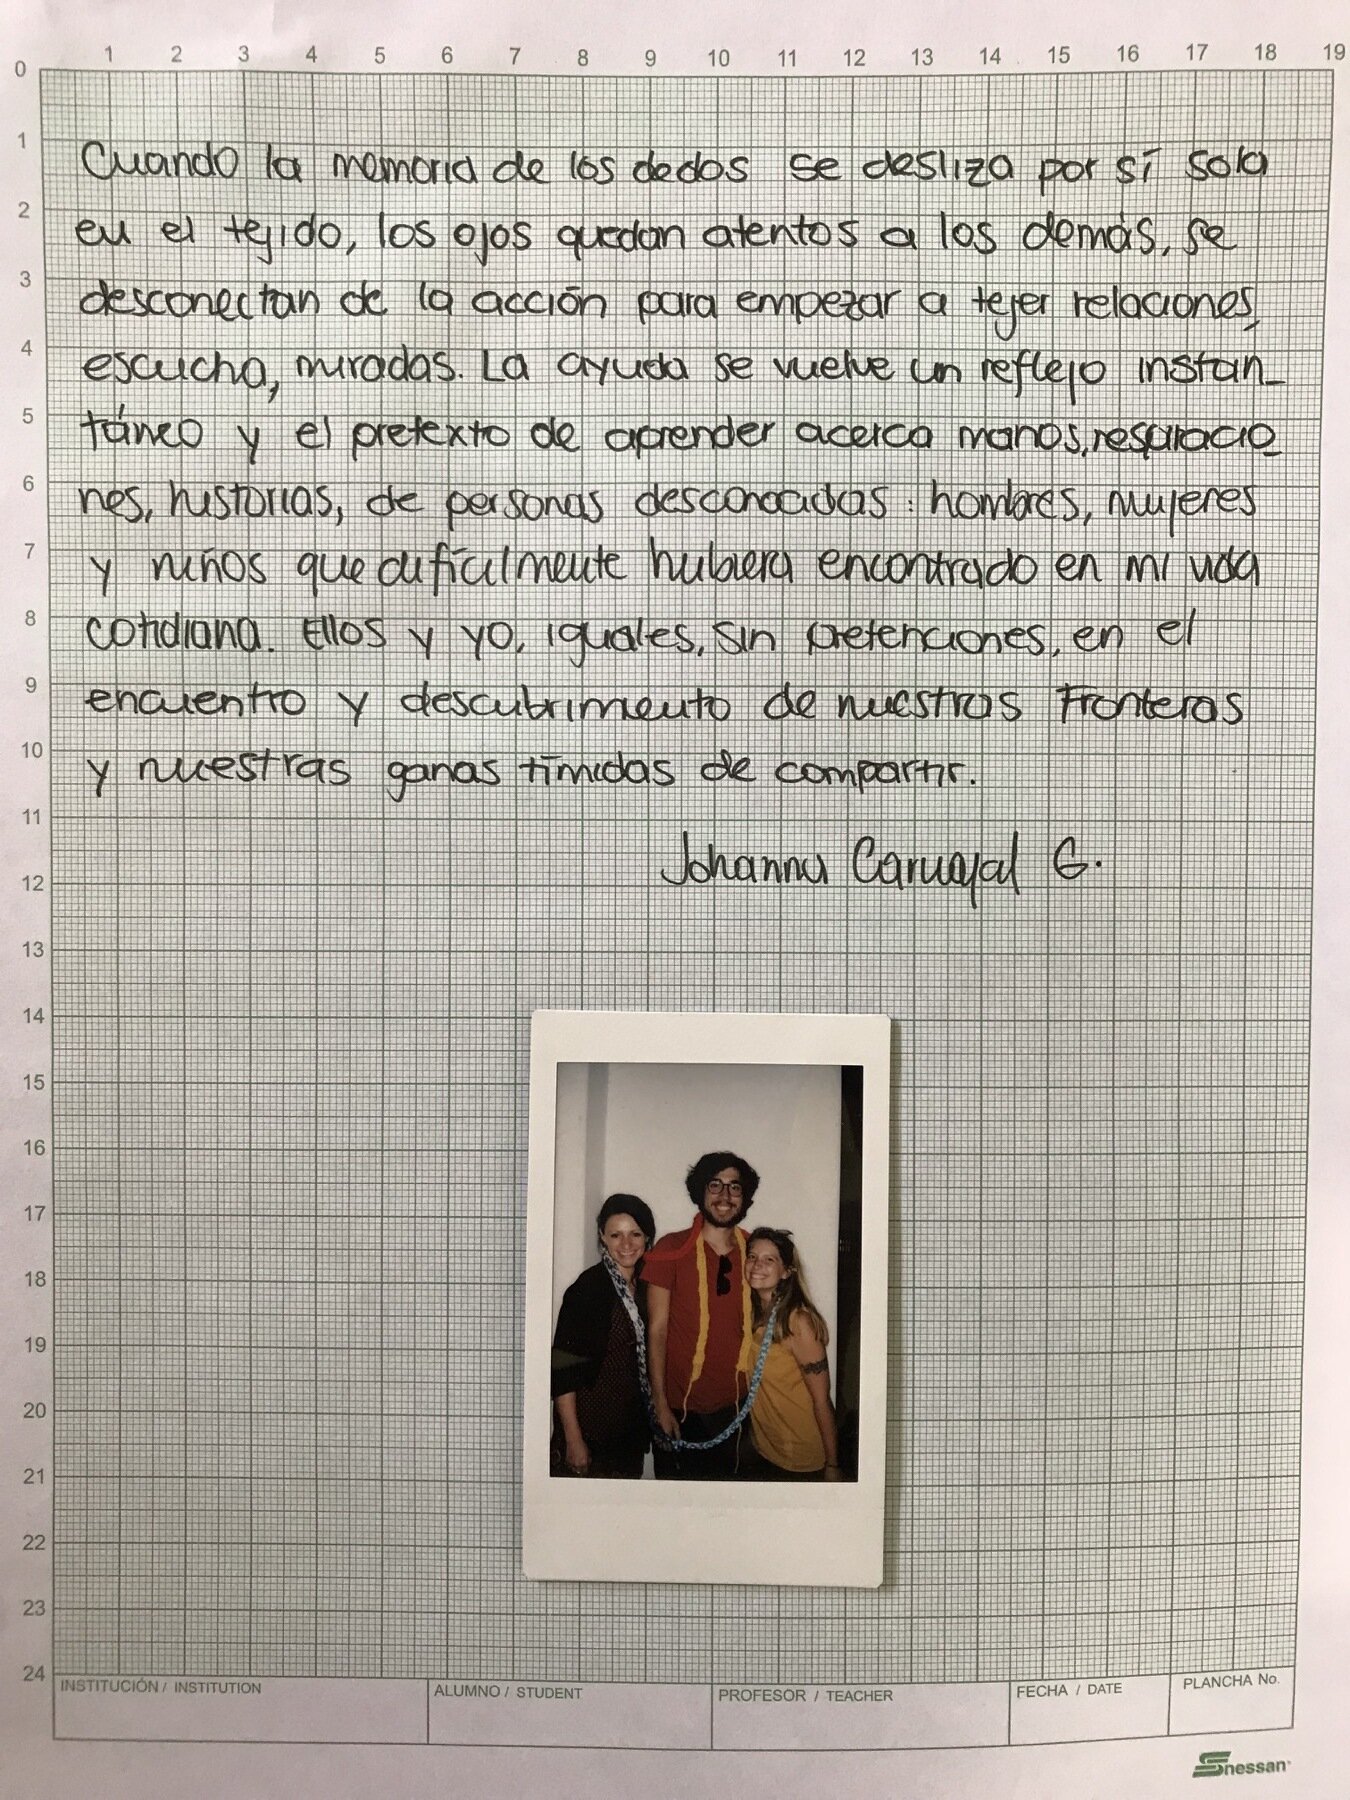 1 2 3 4 5 6 7 8 9 10 11 12 13 14 15 16 17 18 19
0
1
Cuando la memoria de los dedos se desliza por sí sola
2
en el tejido, los ojos quedan atentos a los demás, se
3
desconectan de la acción para empezar a tejer relaciones,
4
escucha, miradas. La ayuda se vuelve un reflejo instan_
5
táneo y el pretexto de aprender acerca manos, respiracio_
6
nes, historias, de personas desconocidas : hombres, mujeres
7
y niños que difícilmente hubiera encontrado en mi vida
8
cotidiana. Ellos y yo, iguales, sin pretenciones, en el
9
encuentro y descubrimiento de nuestras Fronteras
10
y nuestras ganas tímidas de compartir.
11
Johanna Carvajal G.
12
13
14
15
16
17
18
19
20
21
22
23
24
INSTITUCIÓN / INSTITUTION ALUMNO / STUDENT PROFESOR / TEACHER FECHA / DATE PLANCHA No.
Snessan